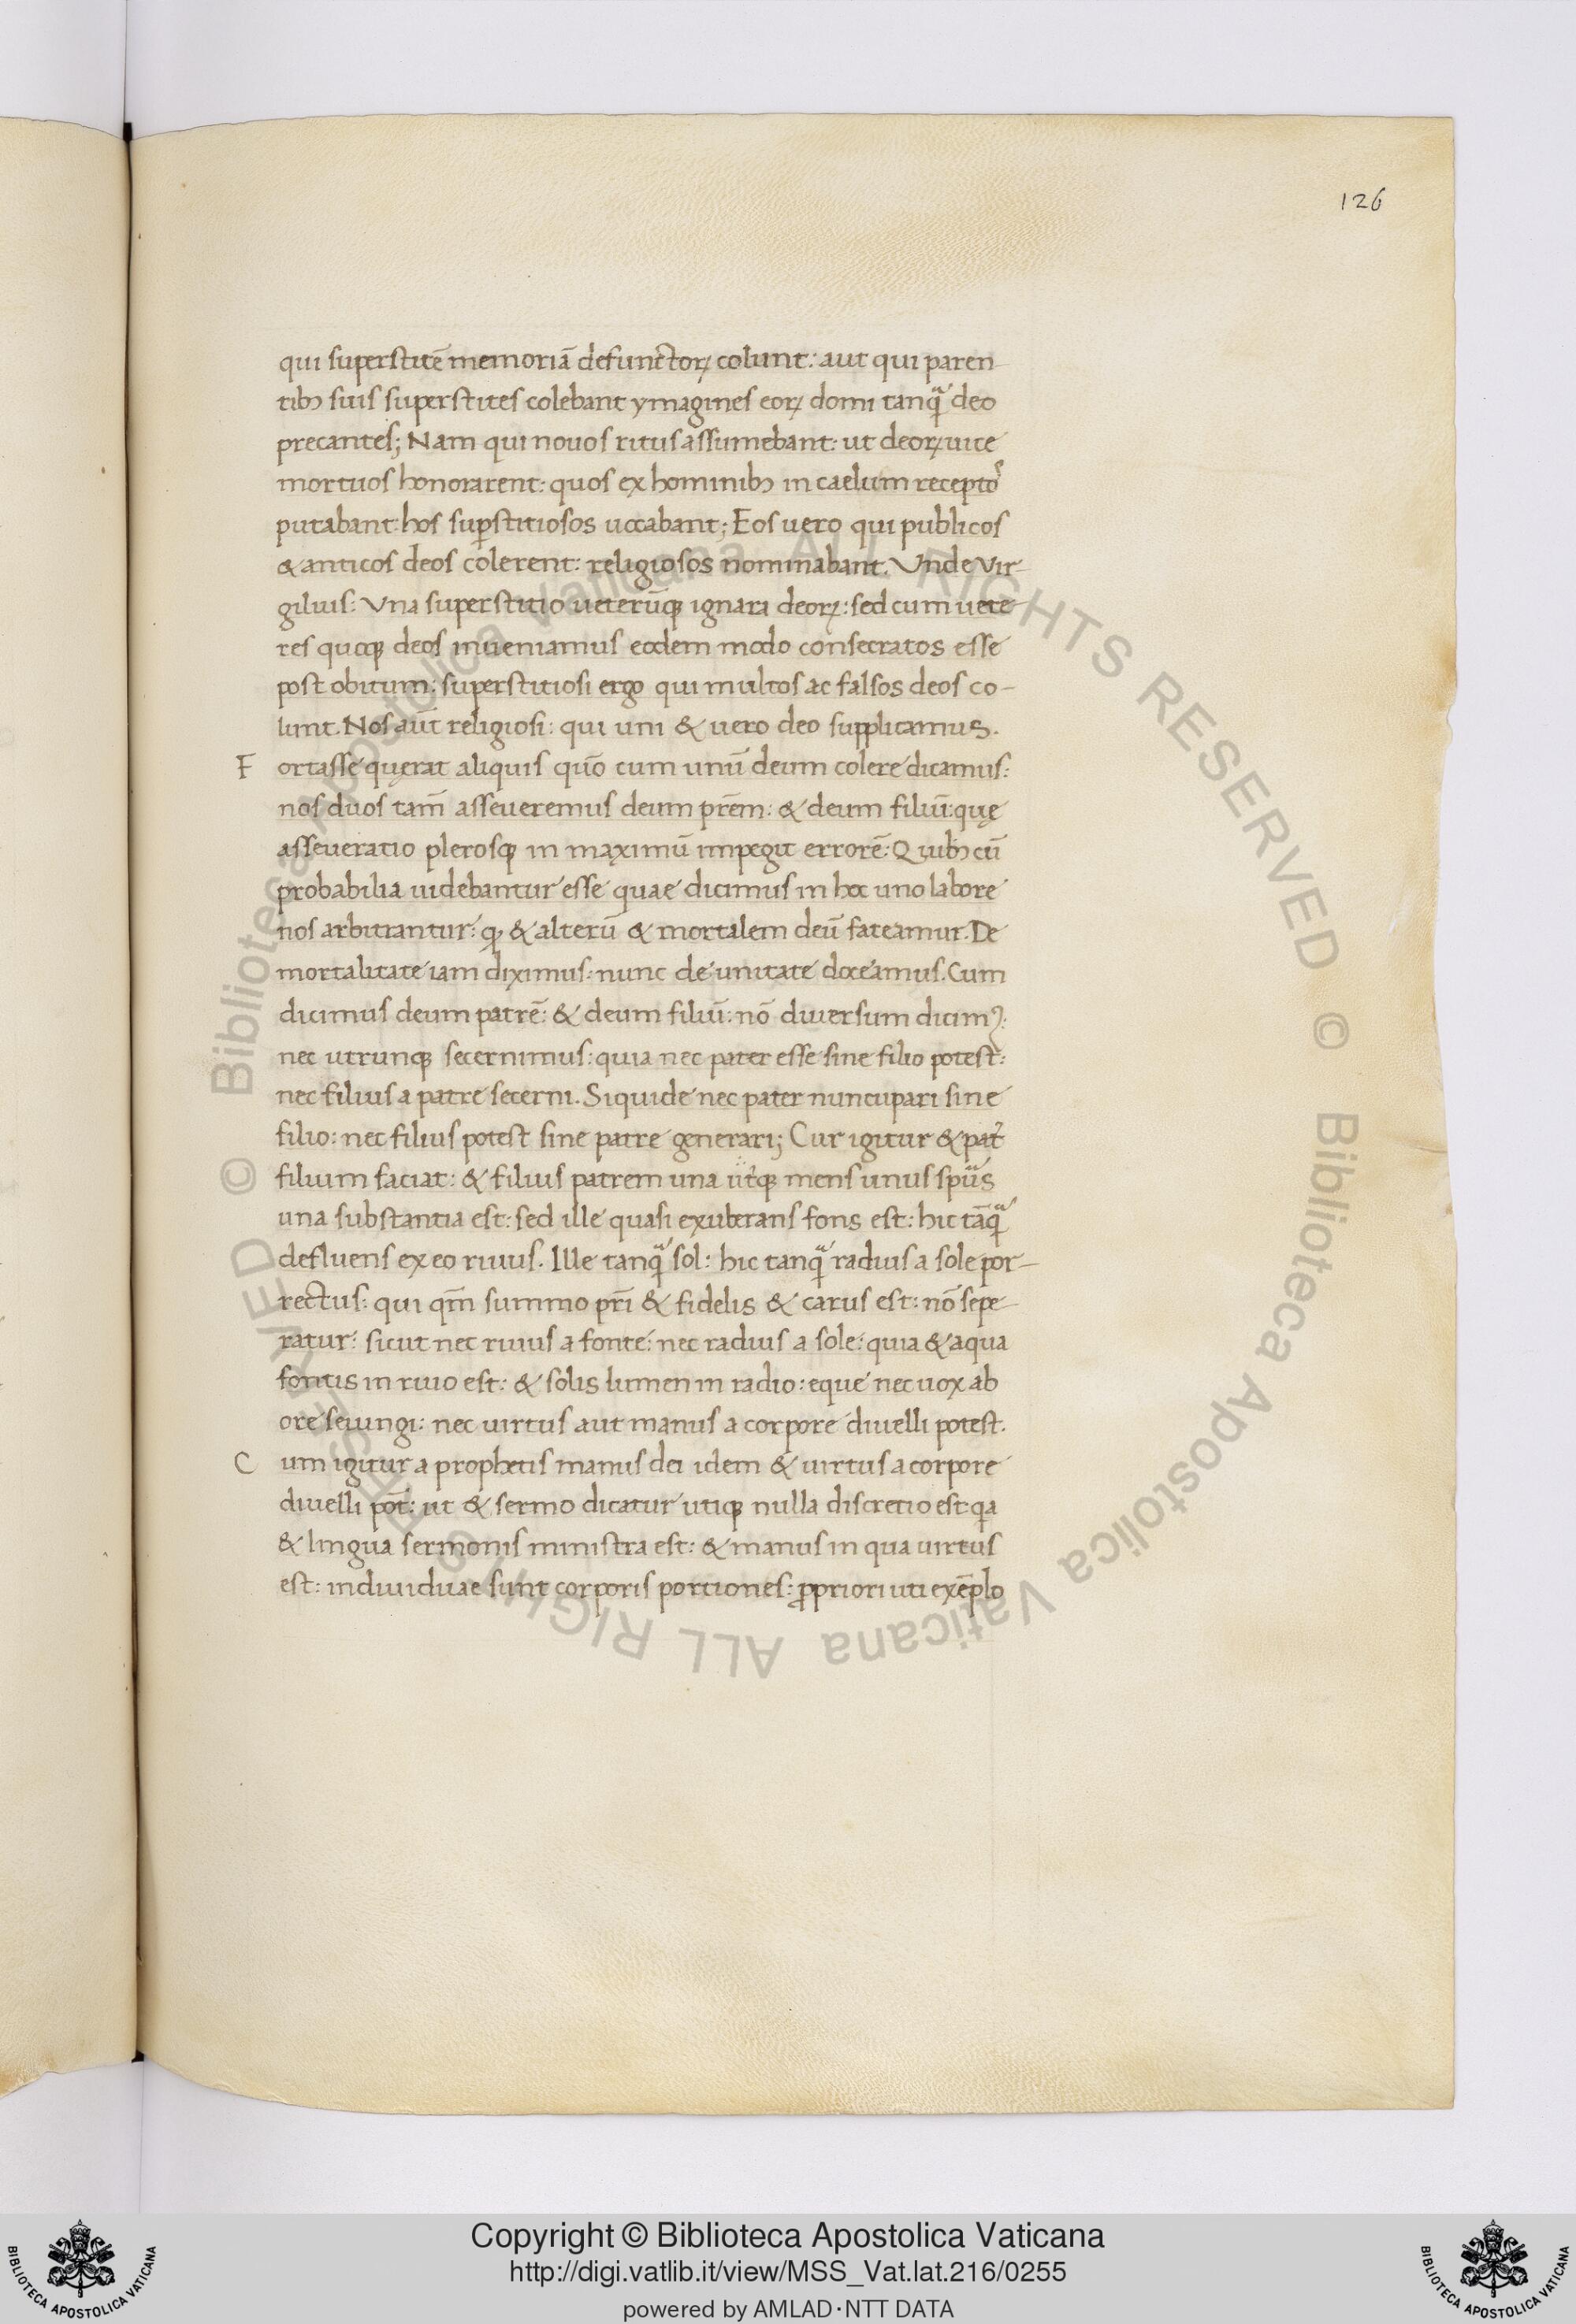 126
qui superstitē memoriā defunctoꝝ colunt: aut qui paren
tibꝫ suis superstites colebant ymagines eoꝝ domi tanqᷓ deo
precantes; Nam qui nouos ritus assumebant: ut deoꝝ uice
mortuos honorarent: quos ex hominibꝫ in caelum receptoˢ
putabant: hos suꝑstitiosos uocabant; Eos uero qui publicos
& anticos deos colerent: religiosos nominabant. Vnde Vir
gilius: Vna superstitio ueterūqꝫ ignara deoꝝ: sed cum uete
res quoqꝫ deos inueniamus eodem modo consecratos esse
post obitum: superstitiosi ergo qui multos ac falsos deos co-
lunt. Nos aūt religiosi: qui uni & uero deo supplicamus.
F ortasse quęrat aliquis quō cum unū deum colere dicamus:
nos duos tam̄ asseueremus deum prēm: & deum filiū: quę
asseueratio plerosqꝫ in maximū impegit errorē: Quibꝫ cū
probabilia uidebantur esse quae dicimus in hoc uno labore
nos arbitrantur: ꝙ & alterū & mortalem deū fateamur. De
mortalitate iam diximus: nunc de unitate doceamus. Cum
dicimus deum patrē: & deum filiū: nō diuersum dicimꝰ:
nec utrunqꝫ secernimus: quia nec pater esse sine filio potest:
nec filius a patre secerni. Siquide nec pater nuncupari sine
filio: nec filius potest sine patre generari; Cur igitur & pat̉
filium faciat: & filius patrem una ut̉qꝫ mens unus spūs
una substantia est: sed ille quasi exuberans fons est: hic tāqᷓ
defluens ex eo riuus. Ille tanqᷓ sol: hic tanqᷓ radius a sole por-
rectus: qui qm̄ summo pr̄i & fidelis & carus est: nō sepe-
ratur: sicut nec riuus a fonte: nec radius a sole: quia & aqua
fontis in riuo est: & solis lumen in radio: eque nec uox ab
ore seiungi: nec uirtus aut manus a corpore diuelli potest.
C um igitur a prophetis manus dei idem & uirtus a corpore
diuelli pot̄: ut & sermo dicatur utiqꝫ nulla discretio est: qa
& lingua sermonis ministra est: & manus in qua uirtus
est: indiuiduae sunt corporis portiones: ꝓpriori uti exēplo
© Biblioteca Apostolica Vaticana ALL RIGHTS RESERVED © Biblioteca Apostolica Vaticana ALL RIGHTS RESERVED
Copyright © Biblioteca Apostolica Vaticana
http://digi.vatlib.it/view/MSS_Vat.lat.216/0255
powered by AMLAD·NTT DATA
BIBLIOTECA APOSTOLICA VATICANA
BIBLIOTECA APOSTOLICA VATICANA